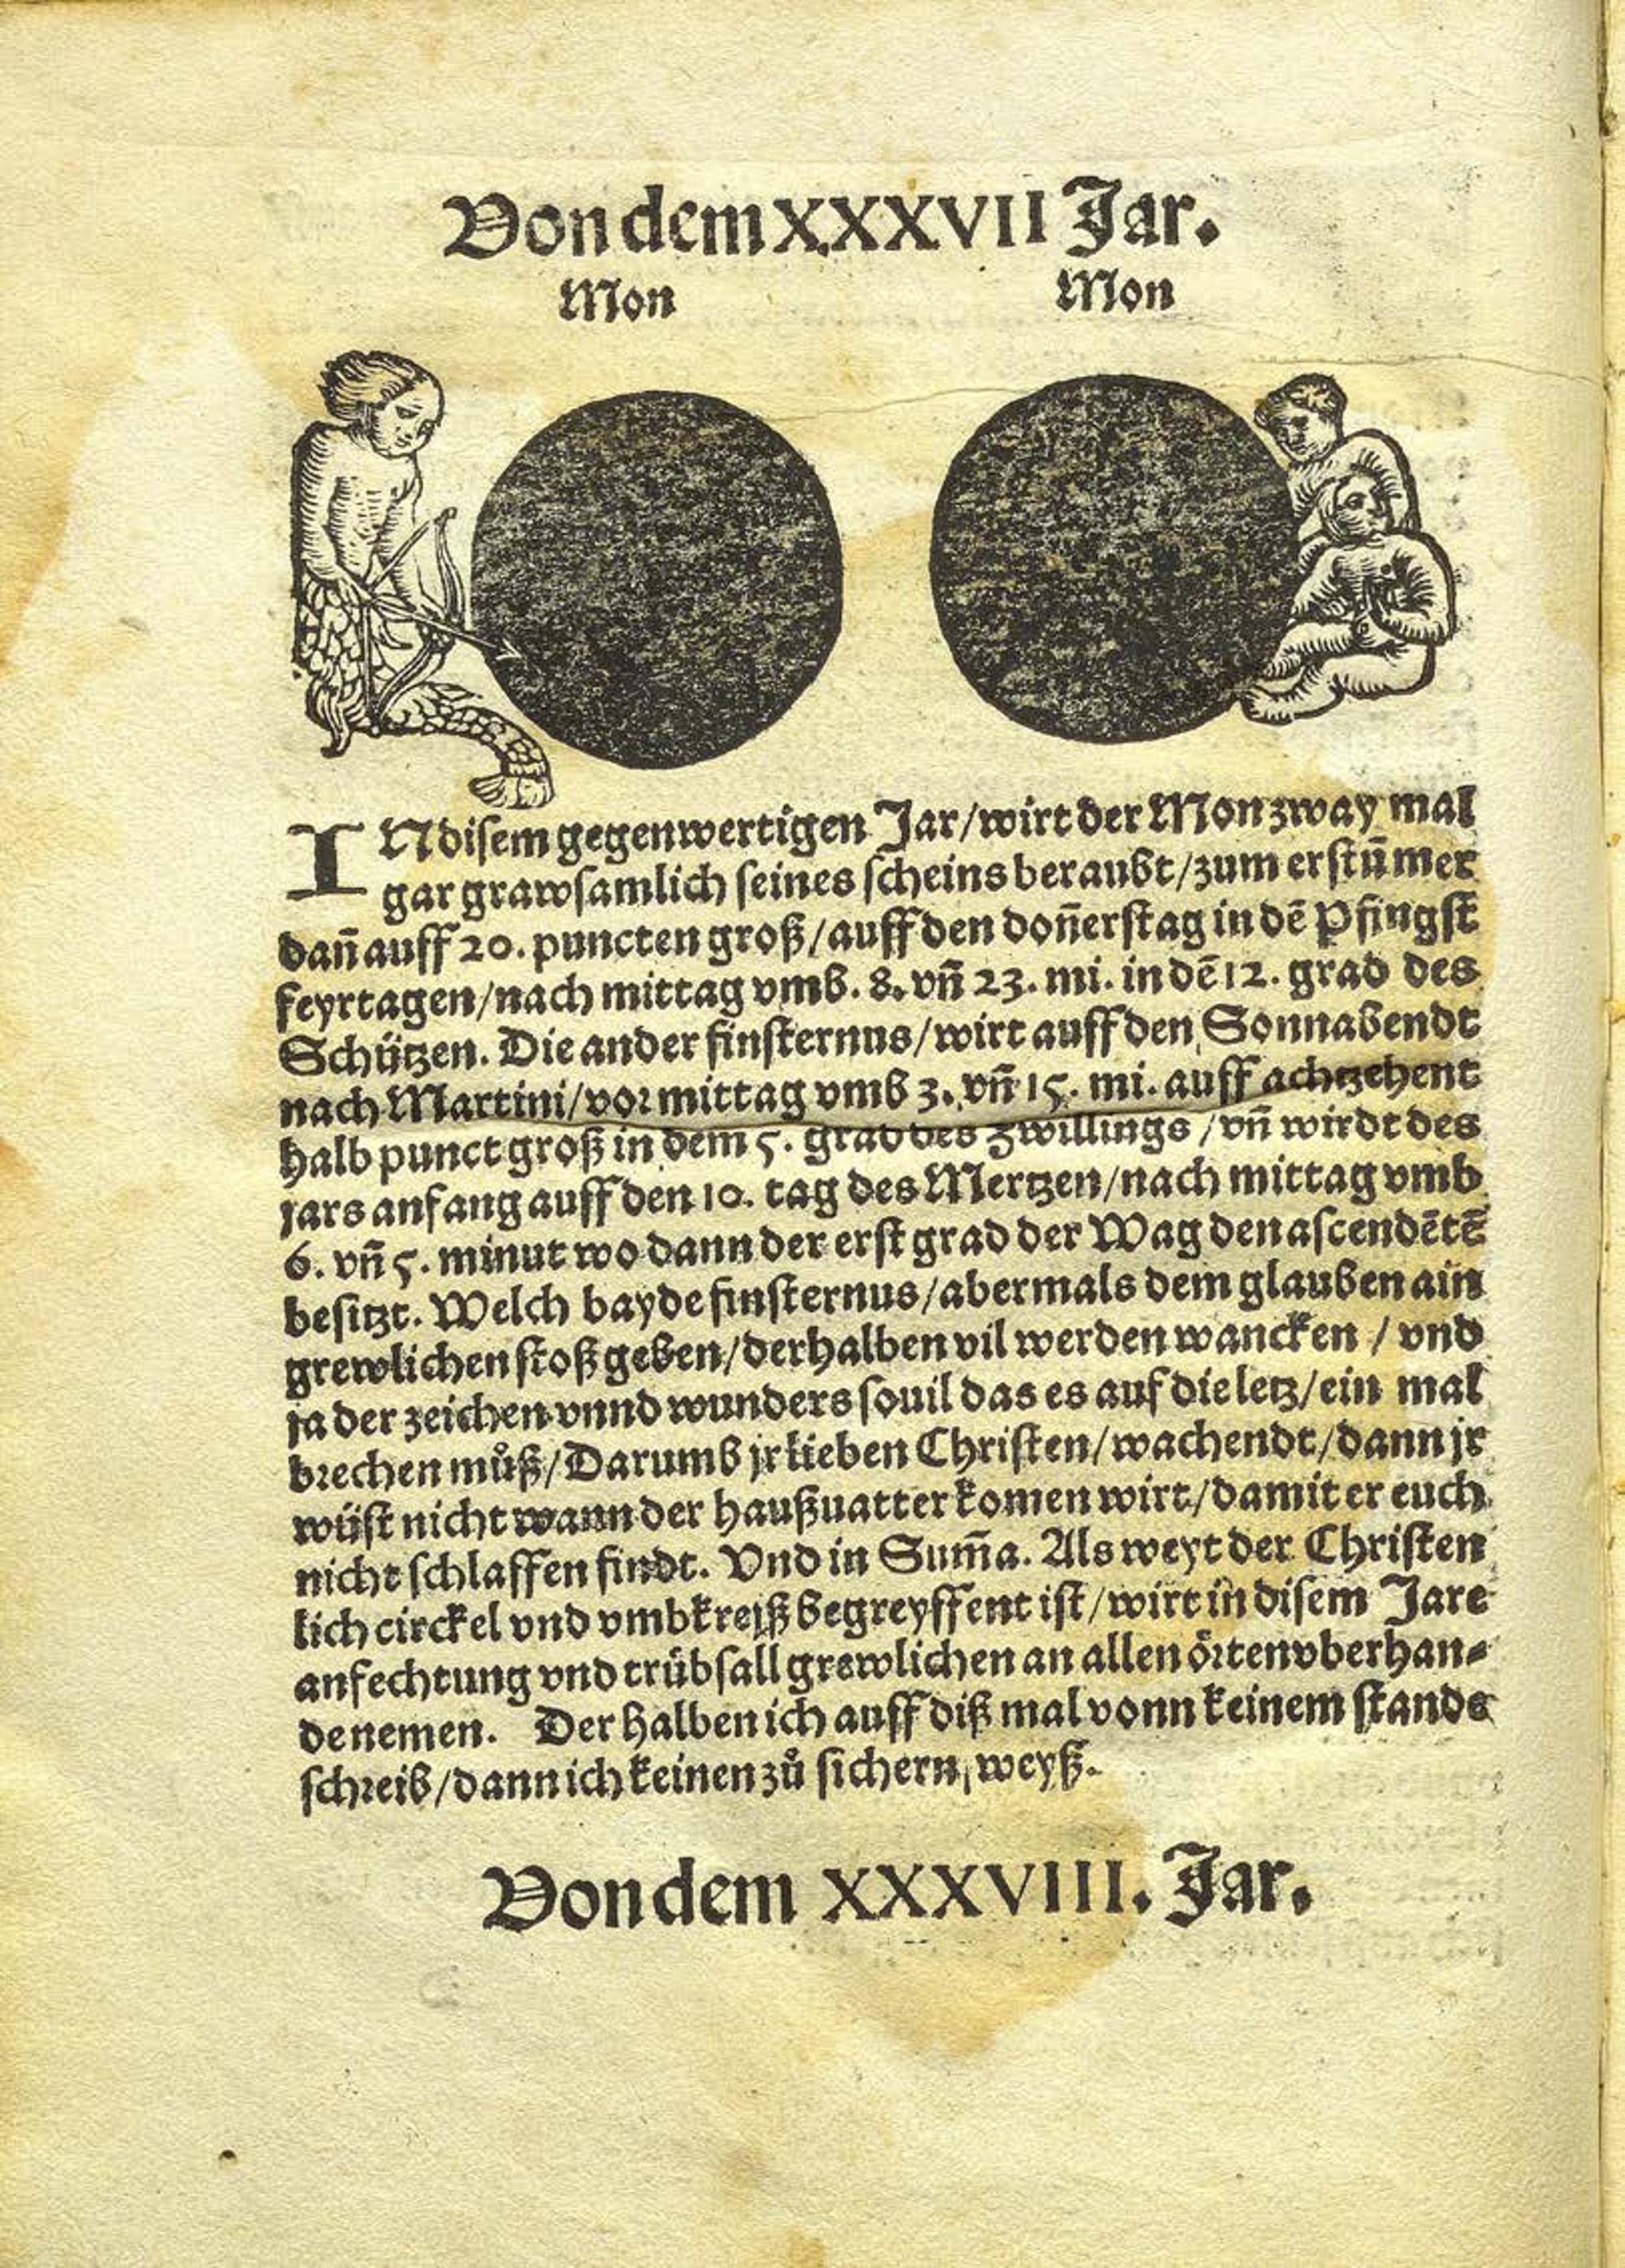 Von dem XXXVII Jar.
Mon Mon
INdisem gegenwertigen Jar/wirt der Mon zway mal
gar grawsamlich seines scheins beraubt/zum erst ū mer
dañ auff 20. puncten groß/auff den doñerstag in dē Pfingst
feyrtagen/nach mittag vmb. 8. vñ 23. mi. in dē 12. grad des
Schützen. Die ander finsternus/wirt auff den Sonnabendt
nach Martini/vor mittag vmb 3. vñ 15. mi. auff achtzehent
halb punct groß in dem 5. grad des zwillings/vñ wirdt des
jars anfang auff den 10. tag des Mertzen/nach mittag vmb
6. vñ 5. minut wo dann der erst grad der Wag den ascendētē
besitzt. Welch bayde finsternus/abermals dem glauben ain
grewlichen stoß geben/derhalben vil werden wancken/vnd
ja der zeichen vnnd wunders souil das es auf die letz/ein mal
brechen můß/Darumb jr lieben Christen/wachendt/dann jr
wüst nicht wann der haußuatter komen wirt/damit er euch
nicht schlaffen findt. Vnd in Sum̄a. Als weyt der Christen
lich circkel vnd vmbkreiß begreyffent ist/wirt in disem Jare
anfechtung vnd trübsall grewlichen an allen örten vberhan-
de nemen. Der halben ich auff diß mal vonn keinem stande
schreib/dann ich keinen zů sichern weyß.
Von dem XXXVIII. Jar.